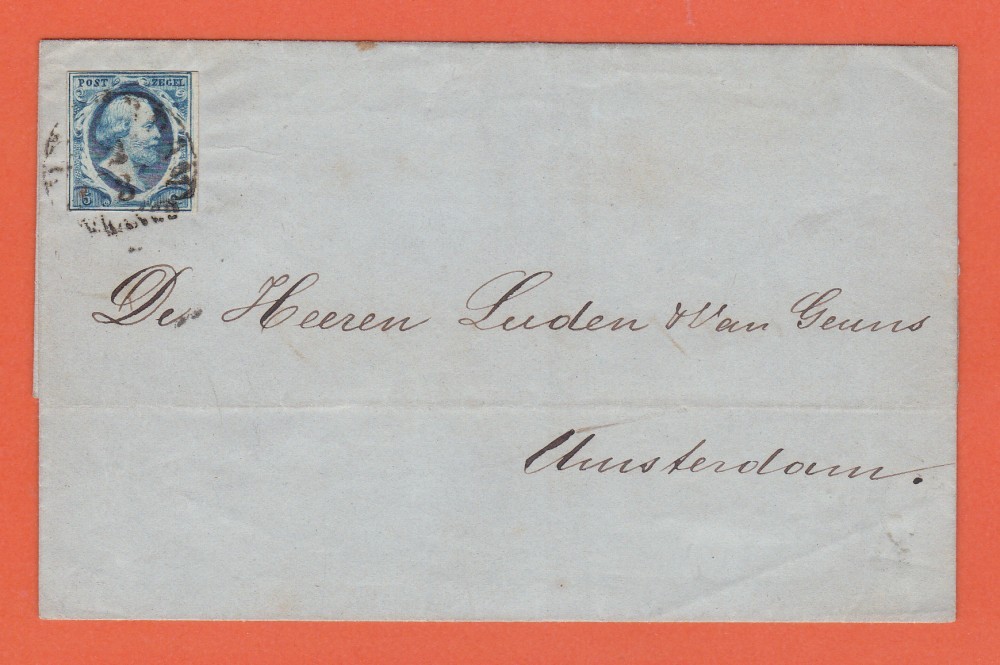 POST ZEGEL
5
De Heeren Luden & Van Geuns
Amsterdam.